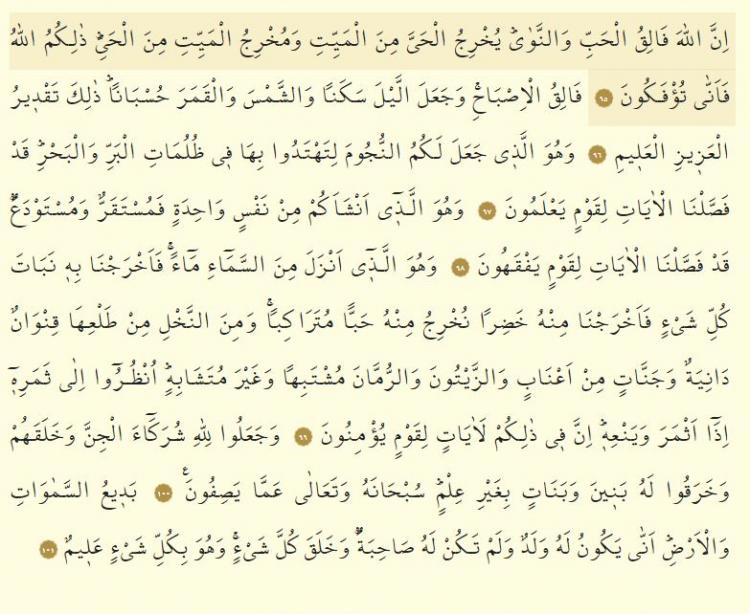 اِنَّ اللّٰهَ فَالِقُ الْحَبِّ وَالنَّوٰىۜ يُخْرِجُ الْحَيَّ مِنَ الْمَيِّتِ وَمُخْرِجُ الْمَيِّتِ مِنَ الْحَيِّۜ ذٰلِكُمُ اللّٰهُ
فَاَنّٰى تُؤْفَكُونَ ٩٥ فَالِقُ الْاِصْبَاحِۚ وَجَعَلَ الَّيْلَ سَكَنًا وَالشَّمْسَ وَالْقَمَرَ حُسْبَانًاۜ ذٰلِكَ تَقْد۪يرُ
الْعَز۪يزِ الْعَل۪يمِ ٩٦ وَهُوَ الَّذ۪ي جَعَلَ لَكُمُ النُّجُومَ لِتَهْتَدُوا بِهَا ف۪ي ظُلُمَاتِ الْبَرِّ وَالْبَحْرِۜ قَدْ
فَصَّلْنَا الْاٰيَاتِ لِقَوْمٍ يَعْلَمُونَ ٩٧ وَهُوَ الَّذ۪ٓي اَنْشَاَكُمْ مِنْ نَفْسٍ وَاحِدَةٍ فَمُسْتَقَرٌّ وَمُسْتَوْدَعٌۜ
قَدْ فَصَّلْنَا الْاٰيَاتِ لِقَوْمٍ يَفْقَهُونَ ٩٨ وَهُوَ الَّذ۪ٓي اَنْزَلَ مِنَ السَّمَٓاءِ مَٓاءًۚ فَاَخْرَجْنَا بِه۪ نَبَاتَ
كُلِّ شَيْءٍ فَاَخْرَجْنَا مِنْهُ خَضِرًا نُخْرِجُ مِنْهُ حَبًّا مُتَرَاكِبًاۚ وَمِنَ النَّخْلِ مِنْ طَلْعِهَا قِنْوَانٌ
دَانِيَةٌ وَجَنَّاتٍ مِنْ اَعْنَابٍ وَالزَّيْتُونَ وَالرُّمَّانَ مُشْتَبِهًا وَغَيْرَ مُتَشَابِهٍۜ اُنْظُرُٓوا اِلٰى ثَمَرِه۪ٓ
اِذَٓا اَثْمَرَ وَيَنْعِه۪ۜ اِنَّ ف۪ي ذٰلِكُمْ لَاٰيَاتٍ لِقَوْمٍ يُؤْمِنُونَ ٩٩ وَجَعَلُوا لِلّٰهِ شُرَكَٓاءَ الْجِنَّ وَخَلَقَهُمْ
وَخَرَقُوا لَهُ بَن۪ينَ وَبَنَاتٍ بِغَيْرِ عِلْمٍۜ سُبْحَانَهُ وَتَعَالٰى عَمَّا يَصِفُونَ۟ ١٠٠ بَد۪يعُ السَّمٰوَاتِ
وَالْاَرْضِۜ اَنّٰى يَكُونُ لَهُ وَلَدٌ وَلَمْ تَكُنْ لَهُ صَاحِبَةٌۜ وَخَلَقَ كُلَّ شَيْءٍۚ وَهُوَ بِكُلِّ شَيْءٍ عَل۪يمٌ ١٠١